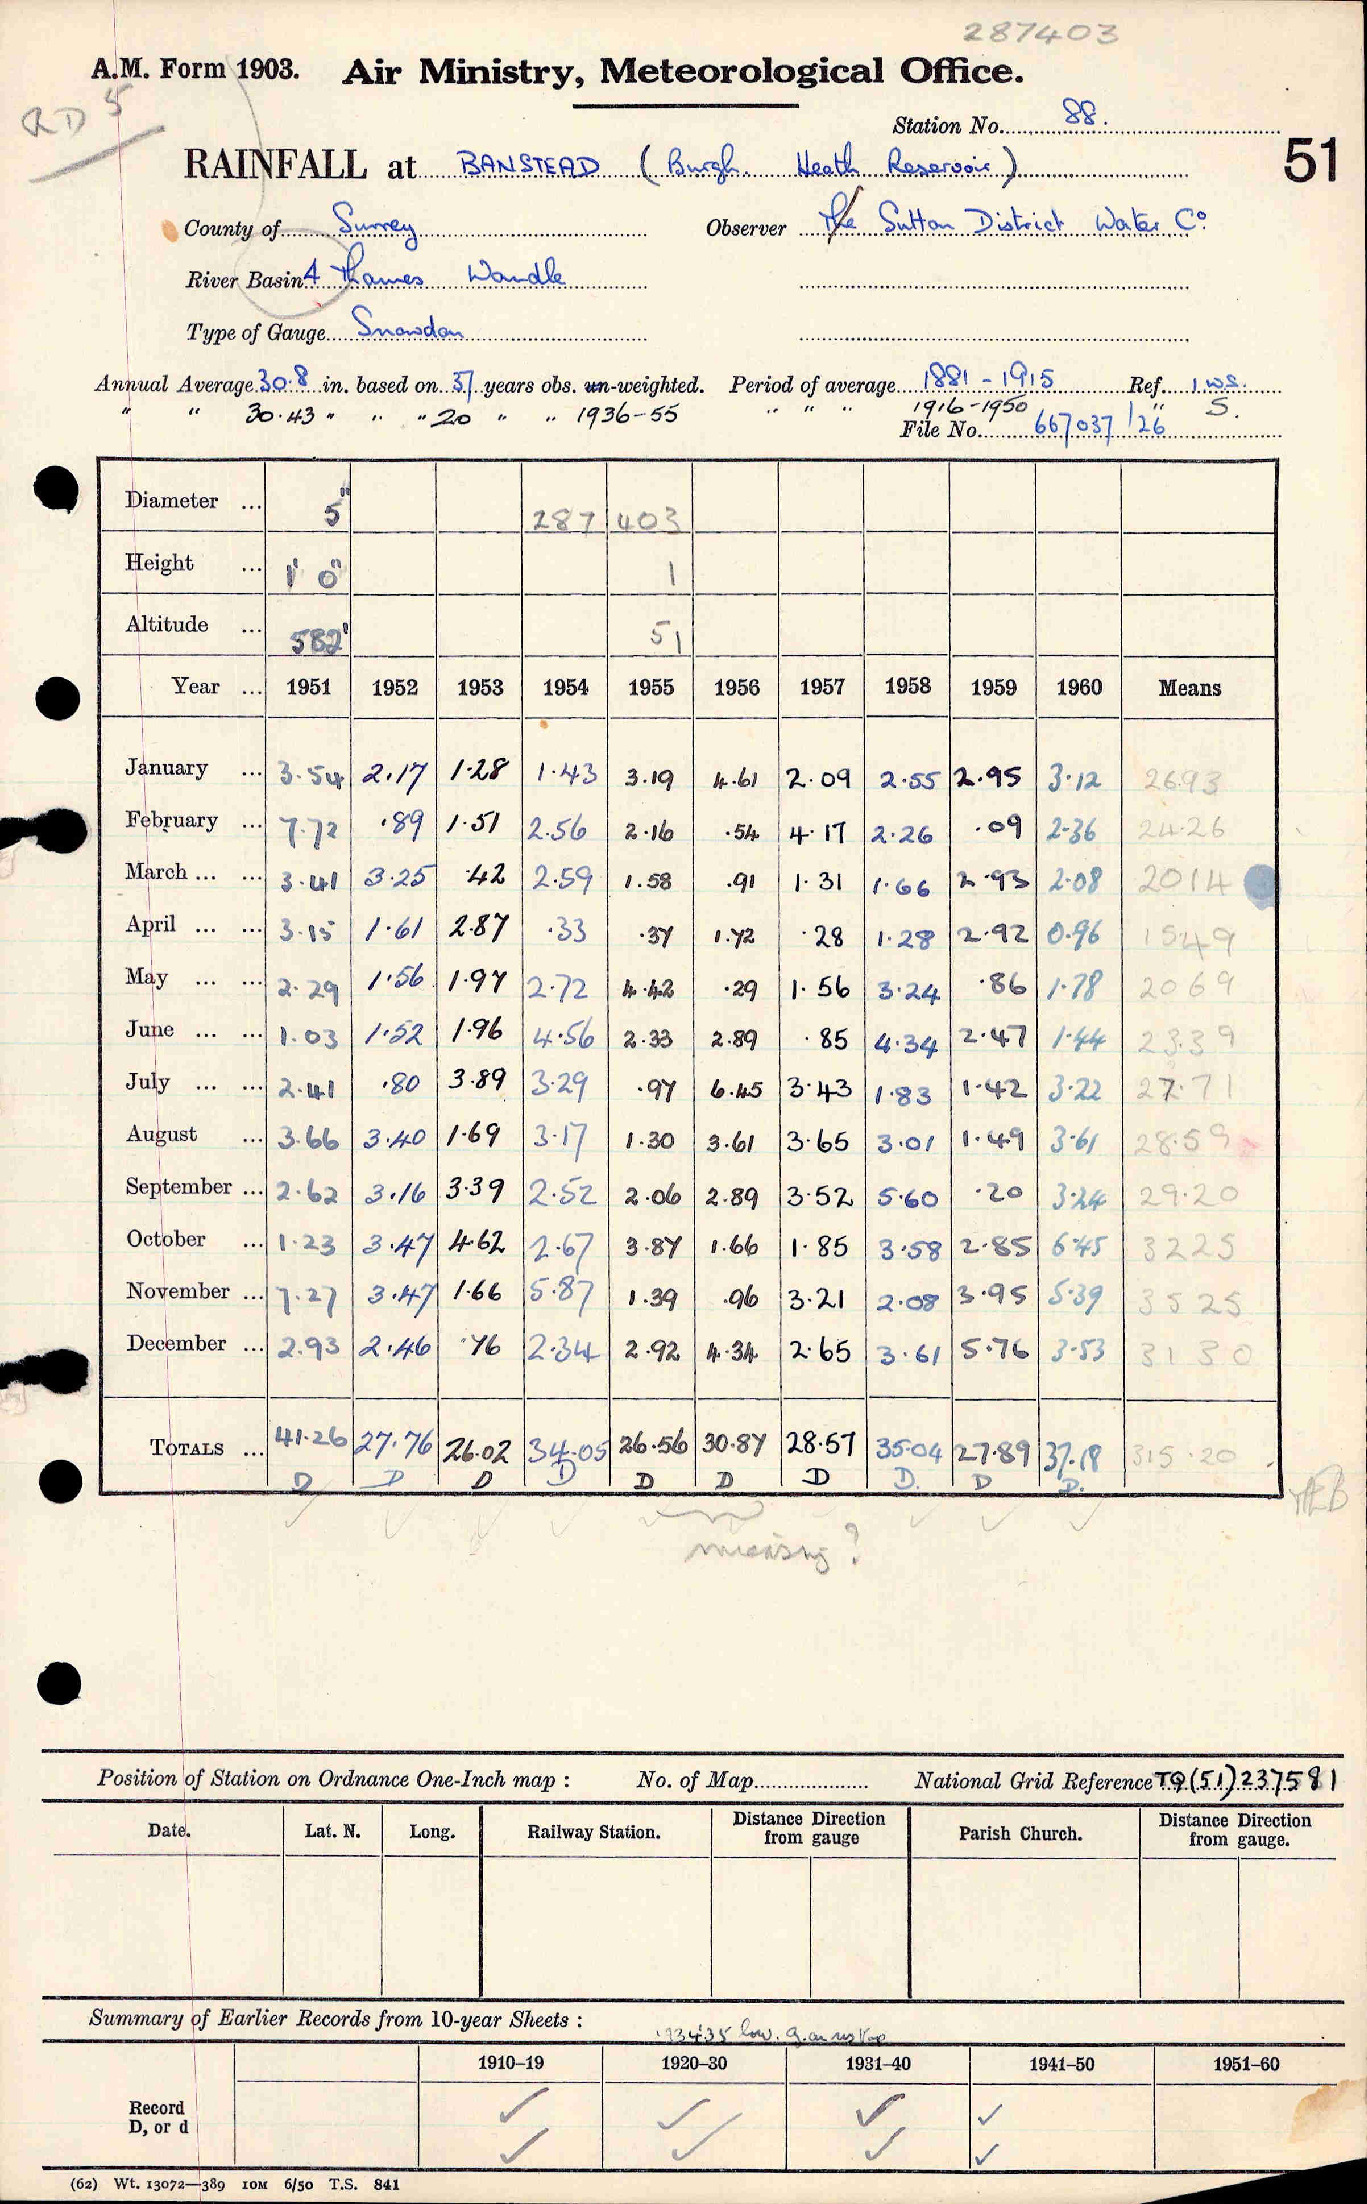 287403
A.M. Form 1903. Air Ministry, Meteorological Office.
RD 5
Station No. 88.
51
RAINFALL at BANSTEAD (Burgh Heath Reservoir)
County of Surrey Observer The Sutton District Water Co.
River Basin 4 Thames Wandle
Type of Gauge Snowdon
Annual Average 30.8 in. based on 37 years obs. un-weighted. Period of average 1881-1915 Ref. 1 ws.
" " 30.43 " " " 20 " " 1936-55 " " " 1916-1950 " S.
File No. 667037/26
Diameter ... 5" 287 403
Height ... 1' 0" 1
Altitude ... 582' 51
Year ... 1951 1952 1953 1954 1955 1956 1957 1958 1959 1960 Means
January ... 3.54 2.17 1.28 1.43 3.19 4.61 2.09 2.55 2.95 3.12 26.93
February ... 7.72 .89 1.51 2.56 2.16 .54 4.17 2.26 .09 2.36 24.26
March ... ... 3.41 3.25 .42 2.59 1.58 .91 1.31 1.66 2.93 2.08 20 14
April ... ... 3.15 1.61 2.87 .33 .37 1.72 .28 1.28 2.92 0.96 15 49
May ... ... 2.29 1.56 1.97 2.72 4.42 .29 1.56 3.24 .86 1.78 20 69
June ... ... 1.03 1.52 1.96 4.56 2.33 2.89 .85 4.34 2.47 1.44 23.39
July ... ... 2.41 .80 3.89 3.29 .97 6.45 3.43 1.83 1.42 3.22 27.71
August ... 3.66 3.40 1.69 3.17 1.30 3.61 3.65 3.01 1.49 3.61 28.59
September ... 2.62 3.16 3.39 2.52 2.06 2.89 3.52 5.60 .20 3.24 29.20
October ... 1.23 3.47 4.62 2.67 3.87 1.66 1.85 3.58 2.85 6.45 32 25
November ... 7.27 3.47 1.66 5.87 1.39 .96 3.21 2.08 3.95 5.39 35 25
December ... 2.93 2.46 .76 2.34 2.92 4.34 2.65 3.61 5.76 3.53 31 30
TOTALS ... 41.26 27.76 26.02 34.05 26.56 30.87 28.57 35.04 27.89 37.18 315.20
D D D D D D D D. D D.
missing?
Position of Station on Ordnance One-Inch map : No. of Map National Grid Reference TQ(51)237581
Date. Lat. N. Long. Railway Station. Distance Direction from gauge Parish Church. Distance Direction from gauge.
Summary of Earlier Records from 10-year Sheets :
1910-19 1920-30 1931-40 1941-50 1951-60
Record
D, or d
(62) Wt. 13072—389 10M 6/50 T.S. 841